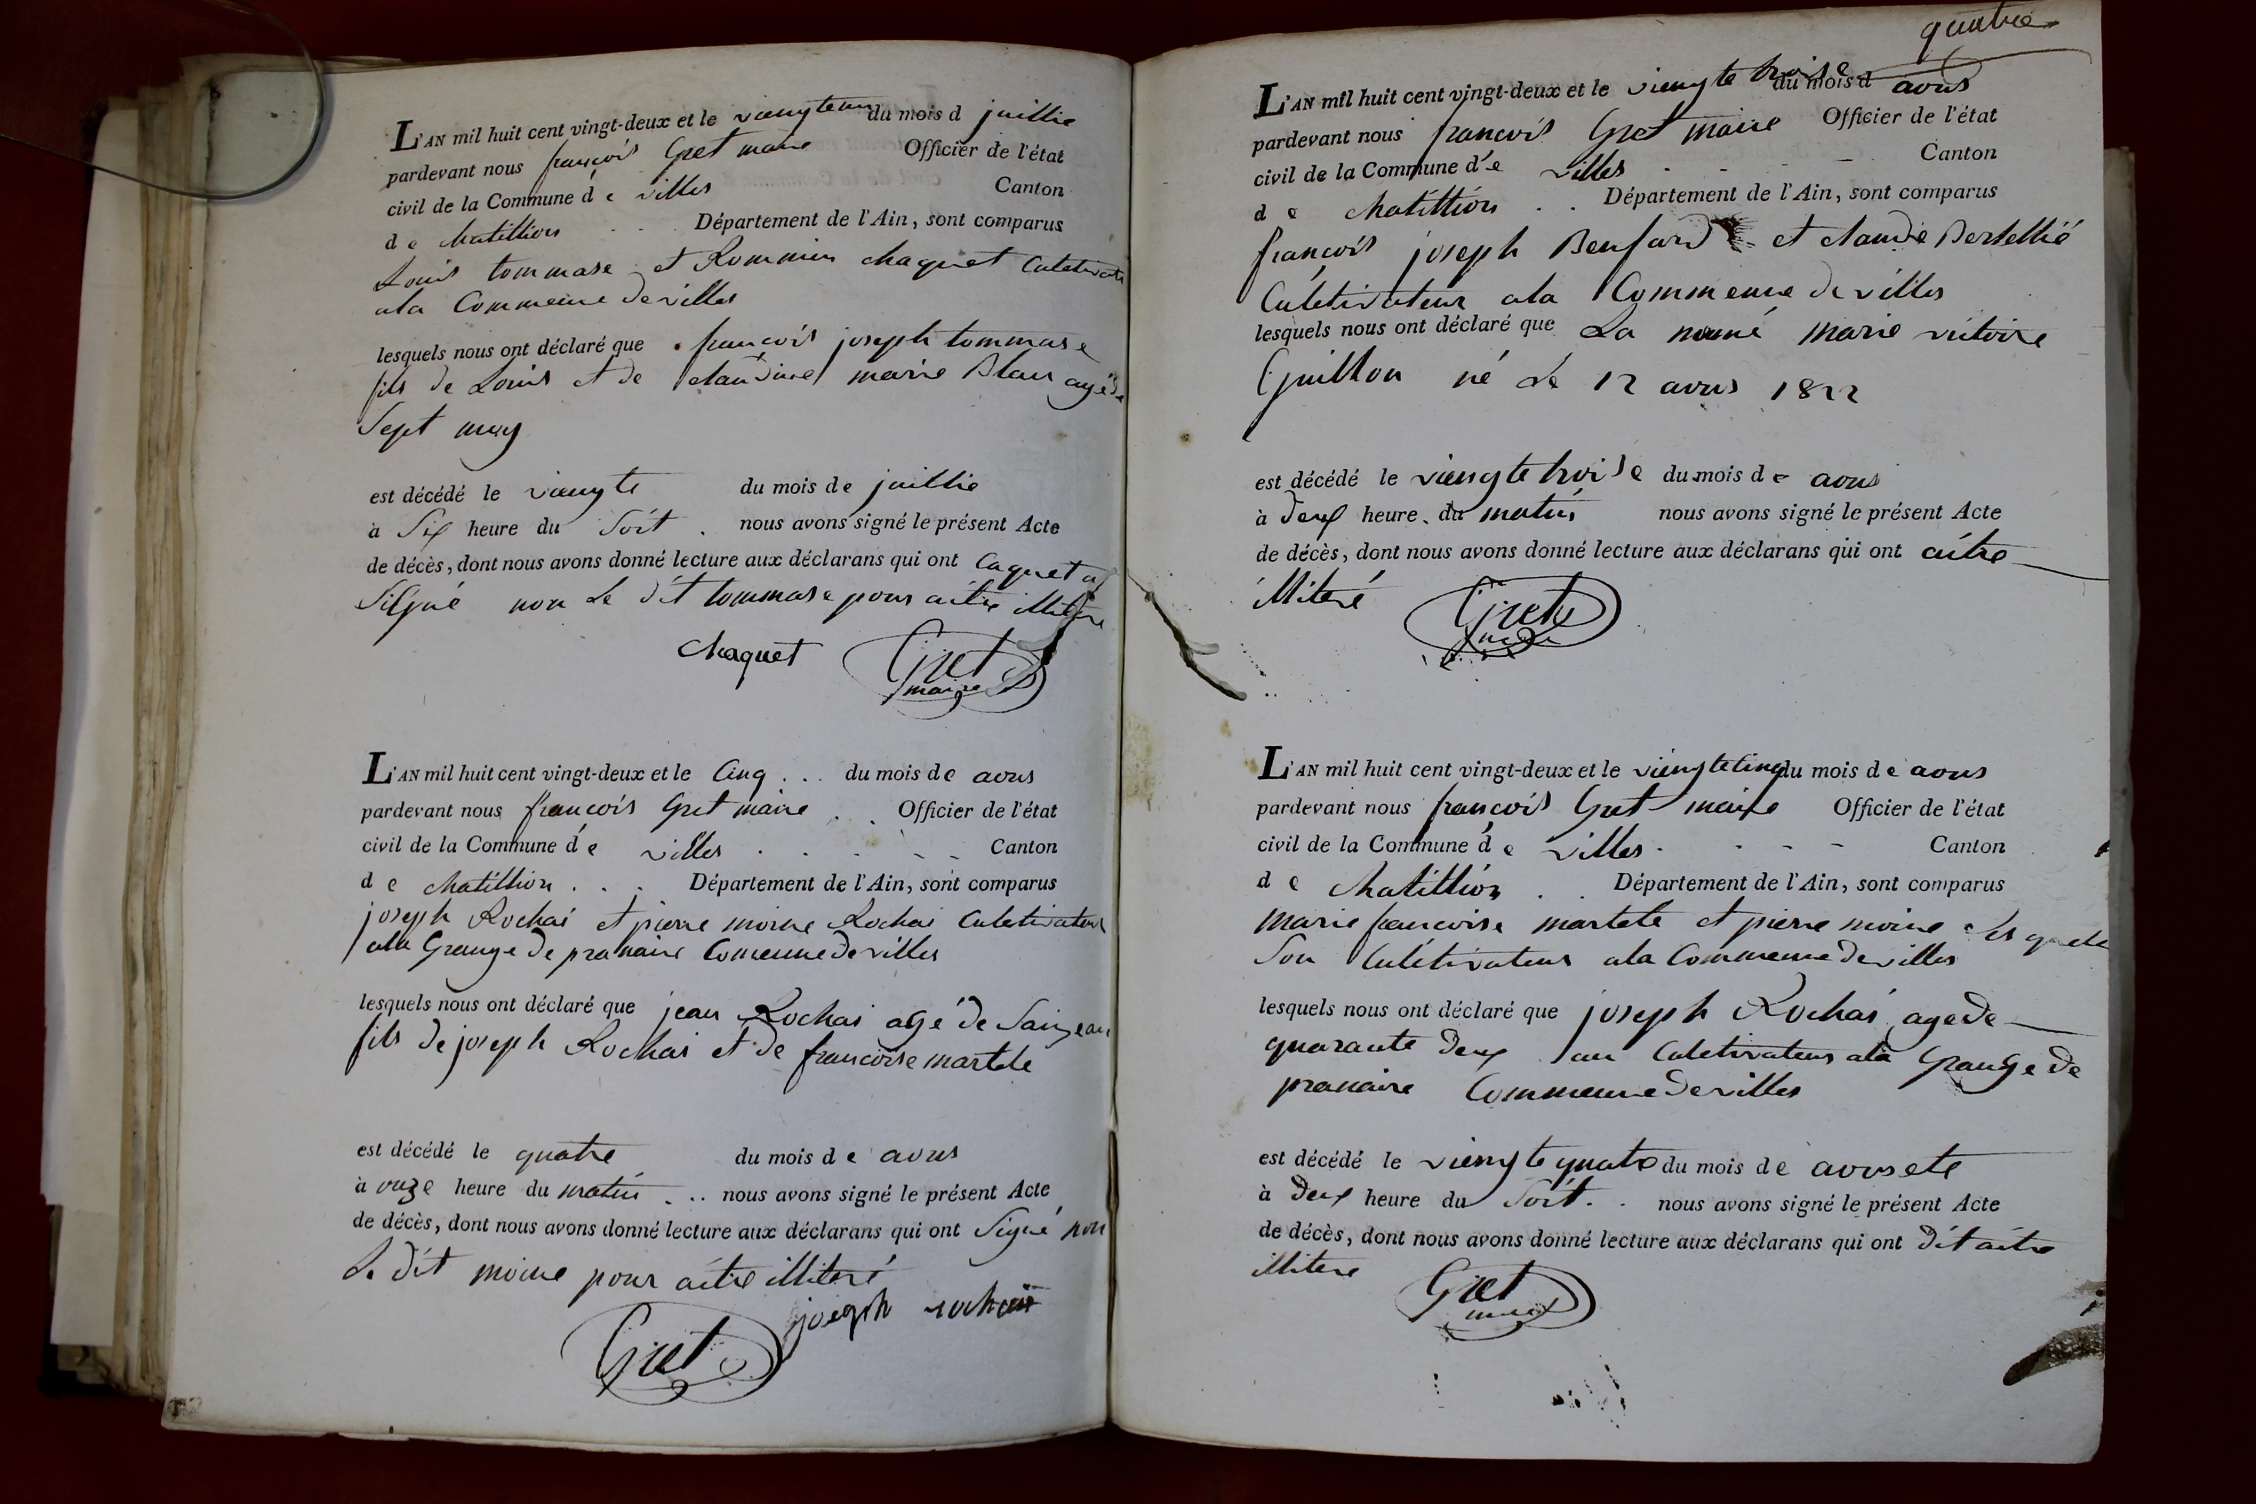 L'AN mil huit cent vingt-deux et le viengteun du mois d juillie
pardevant nous françois Gret maire Officier de l'état
civil de la Commune dé villes Canton
de chatillion Département de l'Ain, sont comparus
Louis tommase et Rommin chaquet
ala Commeune de villes
lesquels nous ont déclaré que francois joseph tommase
fils de Louis et de claudine marie Blan agé de
Sept moy
est décédé le viengte du mois de juillie
à Six heure du Soit nous avons signé le présent Acte
de décès, dont nous avons donné lecture aux déclarans qui ont Caquet a
Signé non Le dit tommase pour aitre illitere
chaquet Gret
maire
L'AN mil huit cent vingt-deux et le Cinq du mois de aous
pardevant nous francois Gret maire Officier de l'état
civil de la Commune dé villes Canton
de chatillion Département de l'Ain, sont comparus
joseph Rochai et pierre moine Rochai Culetivateur
ala Grange de pranaire Comeune de villes
lesquels nous ont déclaré que jean Rochai agé de Saize an
fils de joseph Rochai et de francoise martele
est décédé le quatre du mois de aous
à onze heure du matin nous avons signé le présent Acte
de décès, dont nous avons donné lecture aux déclarans qui ont Signé non
Le dit moine pour aitre illiteré
joseph rochai
Gret
quatre
L'AN mil huit cent vingt-deux et le viengte troise du mois d aous
pardevant nous francois Gret maire Officier de l'état
civil de la Commune dé villes Canton
de chatillion Département de l'Ain, sont comparus
francois joseph Benfard et claude Bertellié
Culetivateur ala Commeune de villes
lesquels nous ont déclaré que La nomé marie victoire
Guillon né Le 12 aous 1822
est décédé le viengte troise du mois de aous
à deux heure du matin nous avons signé le présent Acte
de décès, dont nous avons donné lecture aux déclarans qui ont aitre
illiteré Gret
L'AN mil huit cent vingt-deux et le viengte cinq du mois de aous
pardevant nous françois Gret maire Officier de l'état
civil de la Commune dé villes Canton
de chatillion Département de l'Ain, sont comparus
marie francoise martele et pierre moine Les quele
Son Culetivateur ala Commeune de villes
lesquels nous ont déclaré que joseph Rochai age de
quarante deux an Culetivateur ala Grange de
pranaire Commeune de villes
est décédé le viengte quatre du mois de aousete
à deux heure du Soit nous avons signé le présent Acte
de décès, dont nous avons donné lecture aux déclarans qui ont dit aitre
illitere Gret